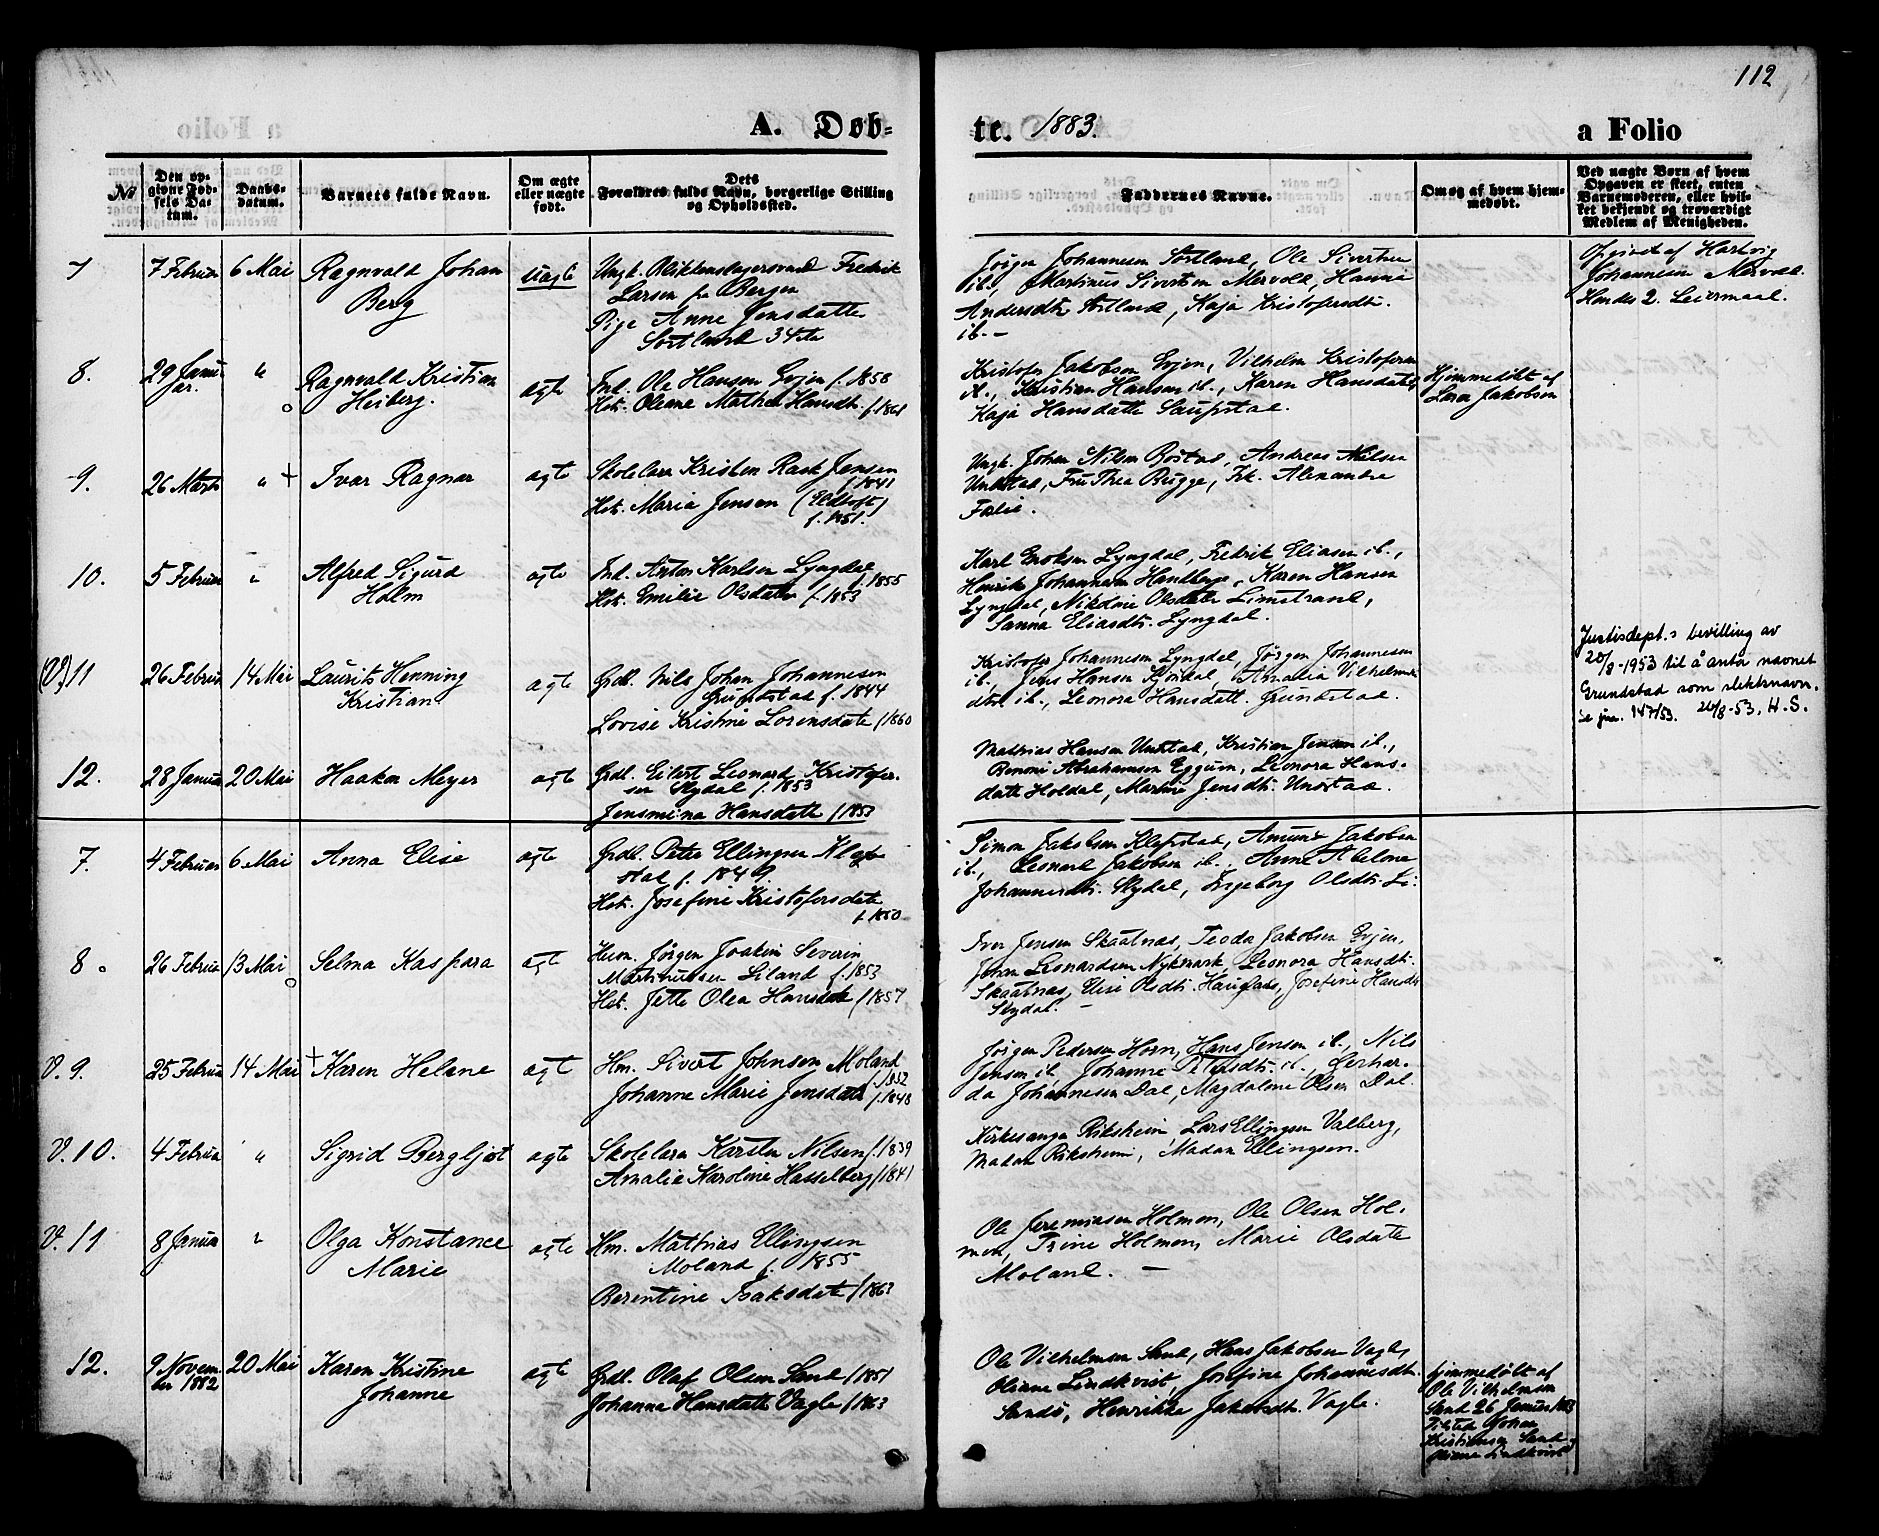 112
A. Døb-
te. 1883.
a Folio
No
Den op-
givne Fød-
sels Da-
tum.
Daabs-
datum.
Barnets fulde Navn.
Om ægte
eller uægte
født.
Dets
Forældres fulde Navn, borgerlige Stilling
og Opholdssted.
Faddernes Navne.
Om og af hvem hjem-
medøbt.
Ved uægte Børn af hvem
Opgaven er skeet, enten
Barnemoderen, eller hvil-
ket bekjendt og troværdigt
Medlem af Menigheden.
7
7 Februar
6 Mai
Ragnvald Johan
Berg
uægte
Ungk. Blikkenslagersvend Fredrik
Larsen fra Bergen
Pige Anne Jensdatter
Sortland 34 te
Jørgen Johannesen Sortland, Ole Sivertsen
ib., Martinus Sivertsen Mervold, Hanna
Andersdtr Sortland, Kaja Kristofersdtr.
ib. –
Opgivet af Hartvig
Johannesen Mervold.
Hendes 2. Leiermaal.
8.
29 Janu-
ar.
"
Ragnvald Kristian
Heiberg.
ægte
Ind. Ole Hansen Evjen f. 1858
Hst. Oleane Mathea Hansdtr. f. 1861
Kristofer Jakobsen Evjen, Vilhelm Kristofersen
ib., Kristian Hansen ib., Karen Hansdatter,
Kaja Hansdatter Saupstad.
Hjemmedøbt af
Lars Jakobsen
9.
26 Marts
"
Ivar Ragnar
ægte
Skolelærer Kristen Rask Jensen
f. 1841
Hst. Maria Jensen (Eltoft)
f. 1851.
Ungk. Johan Nilsen Bøstad, Andreas Nilsen
Unstad, Fru Thea Bugge, Frk. Alexandra
Falie.
10.
5 Februar
"
Alfred Sigurd
Holm
ægte
Ind. Anton Karlsen Lyngdal
f. 1855
Hst. Emilie Olsdatter f. 1853
Karl Enoksen Lyngdal, Fredrik Eliasen ib.,
Henrik Johannesen Handberg, Karen Hansen
Lyngdal, Nikoline Olsdatter Limstrand,
Sanna Eliasdtr. Lyngdal.
(V.) 11
26 Februar
14 Mai
Laurits Henning
Kristian
ægte
Grdb. Nils Johan Johannesen
Grundstad f. 1844
Lovise Kristine Lorensdatter f 1860
Kristofer Johannesen Lyngdal, Jørgen Johannesen
ib., Jens Hansen Kjøndal, Amalia Vilhelms-
dtr. ib., Leonora Hansdatt. Grundstad.
Justisdept.s bevilling av
20/8-1953 til å anta navnet
Grundstad som slektsnavn.
se jnr. 147/53. 26/8-53, H.S.
12.
28 Januar
20 Mai
Haakon Meyer
ægte
Grdb. Eilert Leonard Kristofer-
sen Skydal f. 1853
Jensmina Hansdatter f 1853
Mathias Hansen Unstad, Kristian Jensen ib.,
Benoni Abrahamsen Eggum, Leonora Hans-
datter Holdal, Martine Jensdtr. Unstad.
7.
4 Februar
6 Mai
Anna Elise
ægte
Grdb. Peter Ellingsen Klep-
stad f. 1849.
Hst. Josefine Kristofersdatter
f. 1850
Simon Jakobsen Klepstad, Amund Jakobsen
ib., Leonard Jakobsen ib., Anne Abelone
Johannesdtr. Skydal, Ingeborg Olsdtr. Li-
8.
26 Februar
13 Mai
Selma Kaspara
ægte
Husm. Jørgen Joakim Severin
Martinussen Liland f. 1853
Hst. Jette Olea Hansdatter f 1857
Iver Jensen Skaatnæs, Teoda Jakobsen Evjen,
Johan Leonardsen Nykmark, Leonora Hansdtr.
Skaatnæs, Elise Olsdtr. Haugland, Josefine Hansdtr
Skydal. –
V. 9.
25 Februar
14 Mai
Karen Helene
ægte
Hm. Sivert Johnsen Moland
f. 1852
Johanne Marie Jensdatter f. 1848
Jørgen Pedersen Horn, Hans Jensen ib., Nils
Jensen ib., Johanne Petersdtr. ib., Gerhar-
da Johannesen Dal, Magdalone Olsen Dal.
V. 10.
4 Februar
"
Sigrid Bergljot
ægte
Skolelærer Karsten Nilsen f. 1839
Amalie Karoline Hasselberg f 1841
Kirkesanger Riksheim, Lars Ellingsen Valberg,
Madam Riksheim, Madam Ellingsen.
V. 11
8 Januar
"
Olga Konstance
Marie
ægte
Hm. Mathias Ellingsen
Moland f. 1855
Berentine Isaksdatter f 1863
Ole Jeremiasen Holmen, Ole Olsen Hol-
men, Trine Holmen, Marie Olsdatter
Moland. –
12.
9 Novem-
ber 1882
20 Mai
Karen Kristine
Johanne
ægte
Grdb. Olaf Olsen Sand f 1851
Johanna Hansdatter Vagle f 1863
Ole Vilhelmsen Sand, Hans Jakobsen Vagle,
Oliane Lindkvist, Josefine Johannesdtr.
Sandø, Henrikke Jakobsdtr. Vagle.
Hjemmedøbt af
Ole Vilhelmsen
Sand 26 Januar 1883
Tilsted Johan
Kristiansen Sand og
Oliane Lindkvist